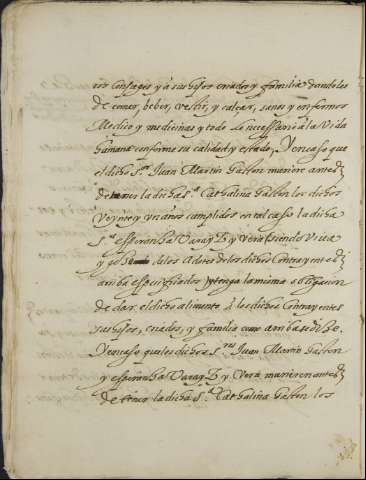 ros consages y a sus hijos criados y familia dandoles
de comer, beber, vestir, y calçar, sanos y enfermos
Medico y medicinas y todo lo necessario a la vida
humana conforme su calidad y estado, Y en caso que
el dicho S.or Juan Martin Gaston muriere antes
de tener la dicha S.a Cathalina Gaston los dichos
veynte y un años cumplidos en tal caso la dicha
S.a esperanza y Vera siendo viva
y de los Adotes de los dichos Contrayentes
arriba especificados y tenga la misma obligacion
de dar el dicho alimento a los dichos Contrayentes
sus hijos, criados, y familia como arriba se dize.
Y en caso que los dichos S.res Juan Martin Gaston
y esperanza y Vera murieren antes
de tener la dicha S.a Cathalina Gaston los